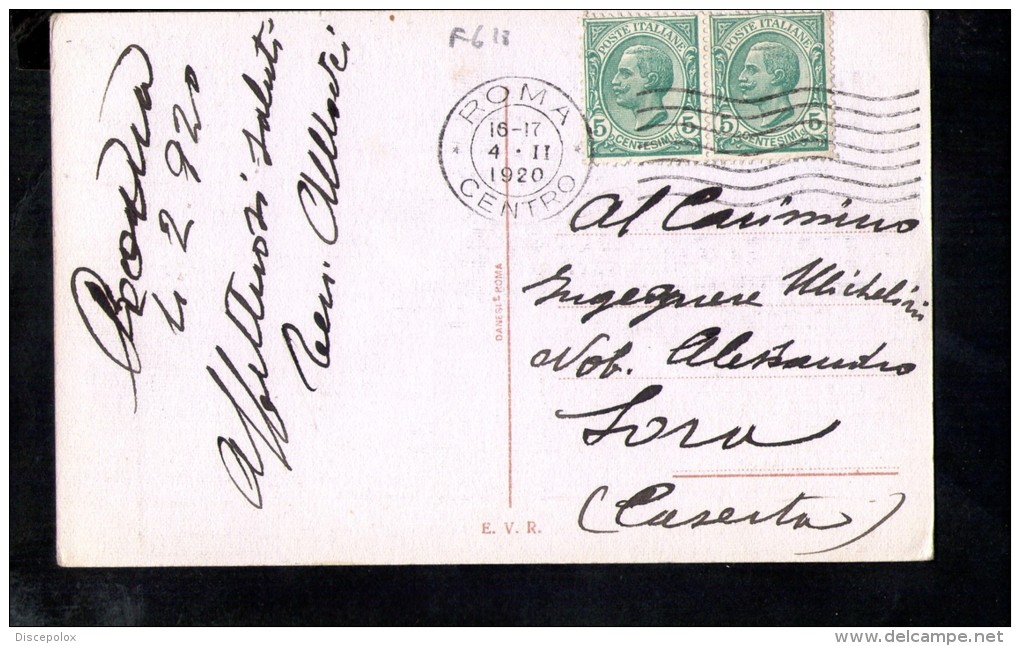 Roma
4 2 920
Affettuosi saluti
F618
ROMA
16-17
4 · II
1920
CENTRO
POSTE ITALIANE
5 CENTESIMI 5
POSTE ITALIANE
5 CENTESIMI 5
Al Carissimo
Ingegnere Michelini
Nob. Alessandro
Sora
(Caserta)
DANESI - ROMA
E. V. R.
Discepolox
www.delcampe.net